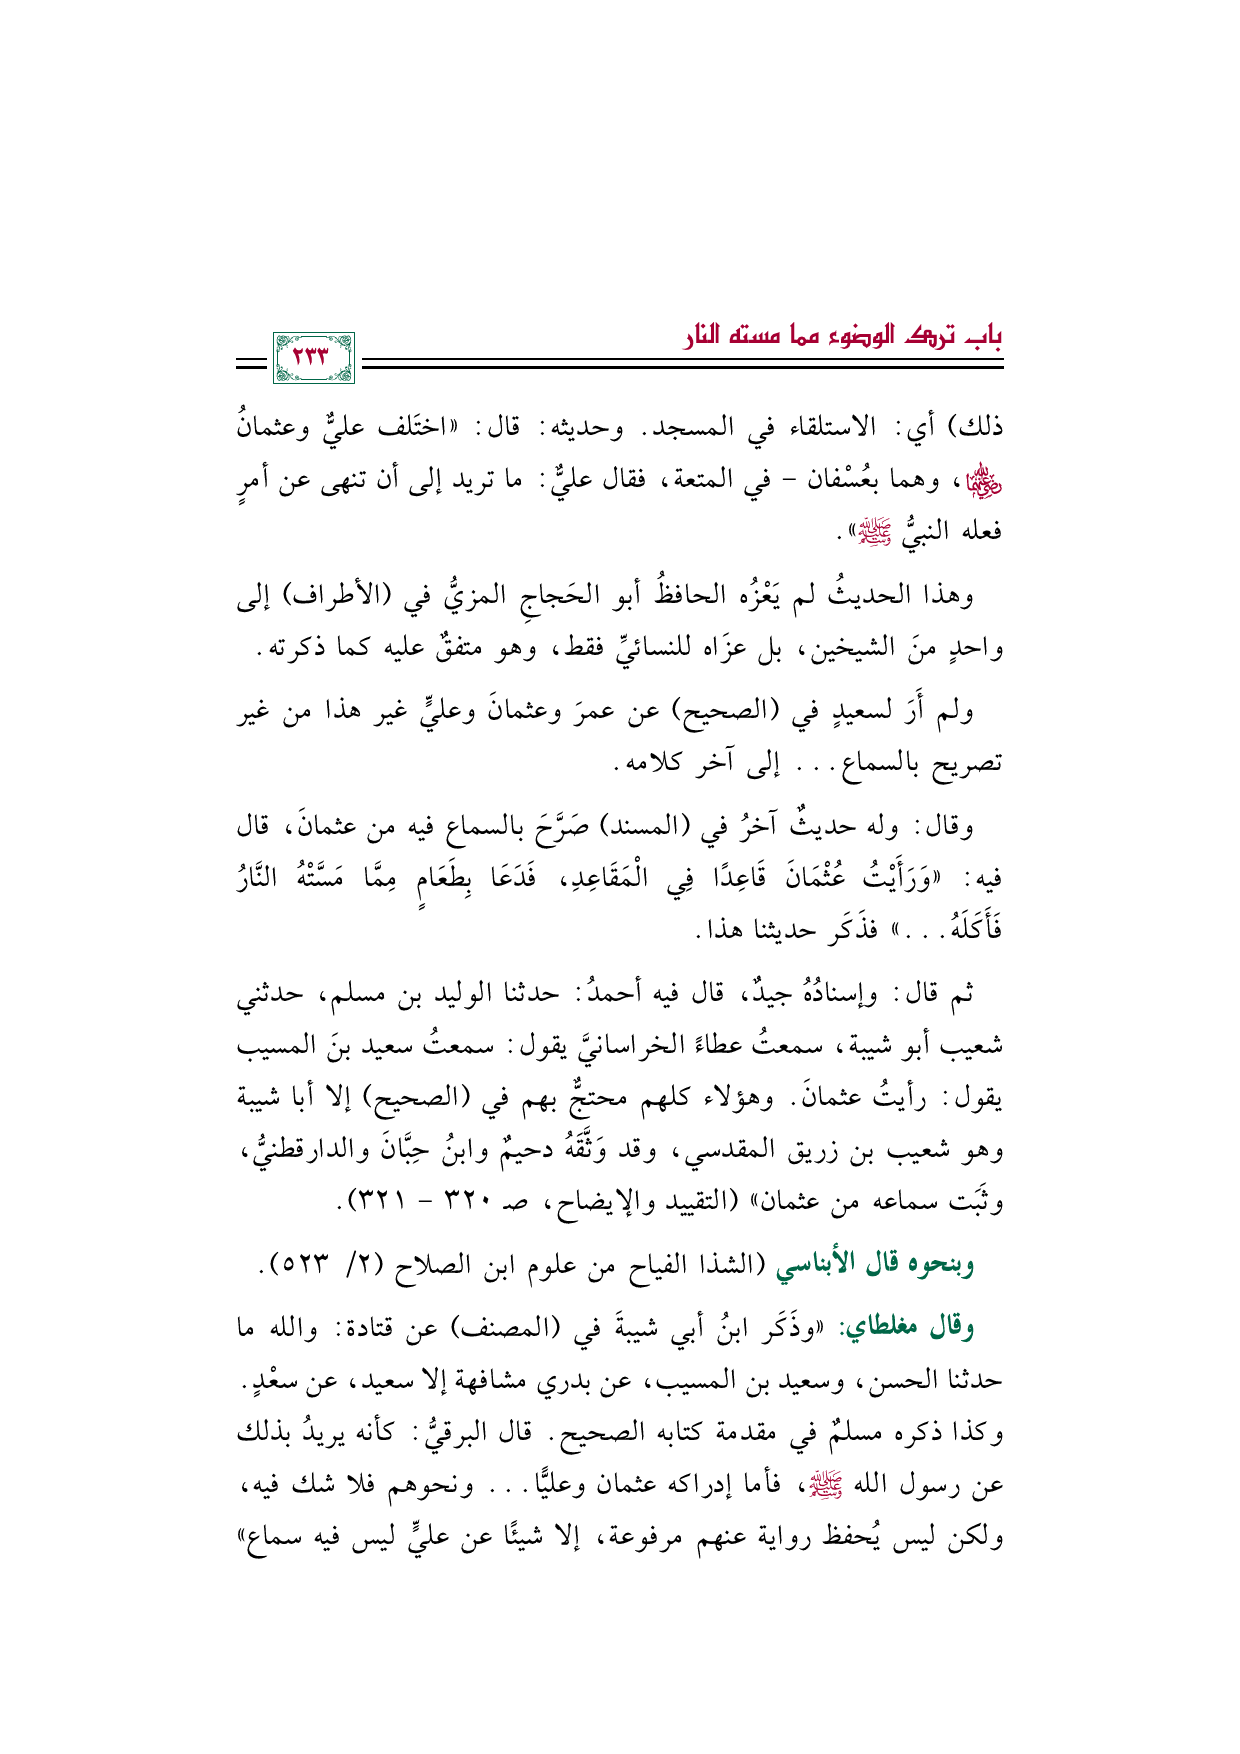 باب ترك الوضوء مما مسته النار
٢٣٣
ذلك) أي: الاستلقاء في المسجد. وحديثه: قال: «اختَلف عليٌّ وعثمانُ
رضي الله عنهما، وهما بعُسْفان - في المتعة، فقال عليٌّ: ما تريد إلى أن تنهى عن أمرٍ
فعله النبيُّ ﷺ».
وهذا الحديثُ لم يَعْزُه الحافظُ أبو الحَجاجِ المزيُّ في (الأطراف) إلى
واحدٍ منَ الشيخين، بل عزَاه للنسائيِّ فقط، وهو متفقٌ عليه كما ذكرته.
ولم أَرَ لسعيدٍ في (الصحيح) عن عمرَ وعثمانَ وعليٍّ غير هذا من غير
تصريح بالسماع... إلى آخر كلامه.
وقال: وله حديثٌ آخرُ في (المسند) صَرَّحَ بالسماع فيه من عثمانَ، قال
فيه: «وَرَأَيْتُ عُثْمَانَ قَاعِدًا فِي الْمَقَاعِدِ، فَدَعَا بِطَعَامٍ مِمَّا مَسَّتْهُ النَّارُ
فَأَكَلَهُ...» فذَكَر حديثنا هذا.
ثم قال: وإسنادُهُ جيدٌ، قال فيه أحمدُ: حدثنا الوليد بن مسلم، حدثني
شعيب أبو شيبة، سمعتُ عطاءً الخراسانيَّ يقول: سمعتُ سعيد بنَ المسيب
يقول: رأيتُ عثمانَ. وهؤلاء كلهم محتجٌّ بهم في (الصحيح) إلا أبا شيبة
وهو شعيب بن زريق المقدسي، وقد وَثَّقَهُ دحيمٌ وابنُ حِبَّانَ والدارقطنيُّ،
وثَبَت سماعه من عثمان» (التقييد والإيضاح، صـ ٣٢٠ - ٣٢١).
وبنحوه قال الأبناسي (الشذا الفياح من علوم ابن الصلاح (٢/ ٥٢٣).
وقال مغلطاي: «وذَكَر ابنُ أبي شيبةَ في (المصنف) عن قتادة: والله ما
حدثنا الحسن، وسعيد بن المسيب، عن بدري مشافهة إلا سعيد، عن سعْدٍ.
وكذا ذكره مسلمٌ في مقدمة كتابه الصحيح. قال البرقيُّ: كأنه يريدُ بذلك
عن رسول الله ﷺ، فأما إدراكه عثمان وعليًّا... ونحوهم فلا شك فيه،
ولكن ليس يُحفظ رواية عنهم مرفوعة، إلا شيئًا عن عليٍّ ليس فيه سماع»